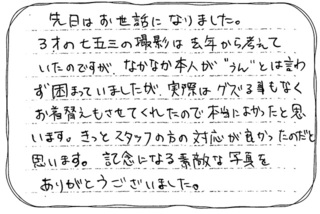 先日はお世話になりました。
3才の七五三の撮影は去年から考えて
いたのですが、なかなか本人が"うん"とは言わ
ず困っていましたが、実際はグズる事もなく
お着替えもさせてくれたので本当によかったと思
います。きっとスタッフの方の対応が良かったのだと
思います。記念になる素敵な写真を
ありがとうございました。